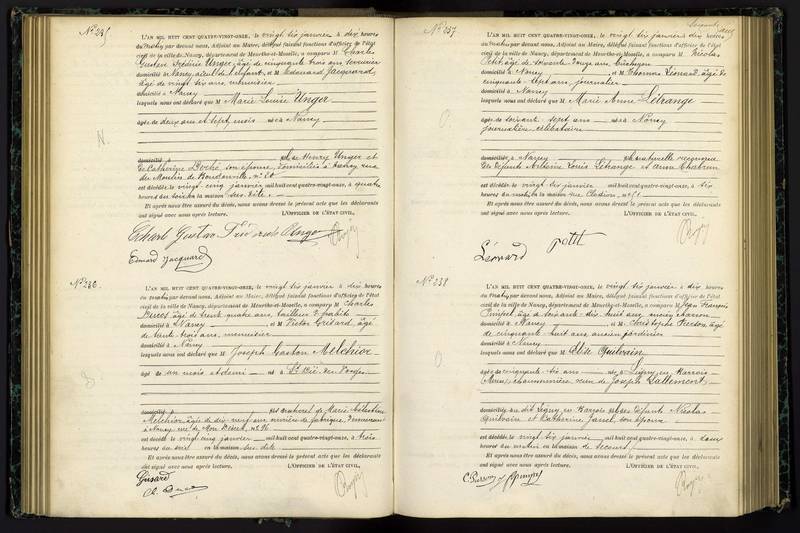 N° 235
L'AN MIL HUIT CENT QUATRE-VINGT-ONZE, le vingt six janvier à dix heures
du matin par devant nous, Adjoint au Maire, délégué faisant fonctions d'officier de l'état
civil de la ville de Nancy, département de Meurthe-et-Moselle, a comparu M Charles
Gustave Frédéric Unger, âgé de cinquante trois ans, serrurier
domicilié à Nancy, aïeul de l'enfant, et M Edouard Jacquard,
âgé de vingt six ans, menuisier
domicilié à Nancy
lesquels nous ont déclaré que M Marie Louise Unger
âgée de deux ans et sept mois née à Nancy
N.
domicilié à fille de Henry Unger et
de Catherine Loché, son épouse, domiciliés à Nancy, rue
du Moulin de Boudonville, n° 20
est décédée le vingt cinq janvier mil huit cent quatre-vingt-onze, à quatre
heures du soir en la maison sus dite
Et après nous être assuré du décès, nous avons dressé le présent acte que les déclarants
ont signé avec nous après lecture. L'OFFICIER DE L'ÉTAT CIVIL,
Charl Gustav Unger
Edouard Jacquard
N° 236
L'AN MIL HUIT CENT QUATRE-VINGT-ONZE, le vingt six janvier à dix heures
du matin par devant nous, Adjoint au Maire, délégué faisant fonctions d'officier de l'état
civil de la ville de Nancy, département de Meurthe-et-Moselle, a comparu M Charles
âgé de trente quatre ans, tailleur d'habits
domicilié à Nancy et M Victor Grisard, âgé
de trente trois ans, menuisier
domicilié à Nancy
lesquels nous ont déclaré que M Joseph Gaston Melchior
âgé de un mois et demi né à St Dié des Vosges
domicilié à fils naturel de Marie Célestine
Melchior, âgée de dix neuf ans, ouvrière de fabrique, demeurant
à Nancy, rue de Mon Désert, n° 96
est décédé le vingt cinq janvier mil huit cent quatre-vingt-onze, à trois
heures du soir en la maison sus dite
Et après nous être assuré du décès, nous avons dressé le présent acte que les déclarants
ont signé avec nous après lecture. L'OFFICIER DE L'ÉTAT CIVIL,
Grisard
N° 237
L'AN MIL HUIT CENT QUATRE-VINGT-ONZE, le vingt six janvier à dix heures
du matin par devant nous, Adjoint au Maire, délégué faisant fonctions d'officier de l'état
civil de la ville de Nancy, département de Meurthe-et-Moselle, a comparu M Nicolas
Petit, âgé de soixante douze ans
domicilié à Nancy et M Thomas Léonard, âgé de
cinquante sept ans, journalier
domicilié à Nancy
lesquels nous ont déclaré que M Marie Anne Létrange
âgée de soixante sept ans née à Nancy
journalière, célibataire
domiciliée à Nancy fille naturelle reconnue
de défunts Antoine Louis Létrange et Anne Chatrian
est décédée le vingt six janvier mil huit cent quatre-vingt-onze, à six
heures du matin en la maison rue Clodion, n° 11
Et après nous être assuré du décès, nous avons dressé le présent acte que les déclarants
ont signé avec nous après lecture. L'OFFICIER DE L'ÉTAT CIVIL,
Léonard petit
N° 238
L'AN MIL HUIT CENT QUATRE-VINGT-ONZE, le vingt six janvier à dix heures
du matin par devant nous, Adjoint au Maire, délégué faisant fonctions d'officier de l'état
civil de la ville de Nancy, département de Meurthe-et-Moselle, a comparu M Jean François
âgé de soixante dix huit ans, ancien charron
domicilié à Nancy et M Christophe Pierson, âgé
de cinquante huit ans, ancien jardinier
domicilié à Nancy
lesquels nous ont déclaré que M Elise Quilvain
âgée de cinquante six ans née à Ligny en Barrois
(Meuse), veuve de Joseph Lallemant
domiciliée au dit Ligny en Barrois fille de défunts Nicolas
Quilvain et Catherine son épouse
est décédée le vingt six janvier mil huit cent quatre-vingt-onze, à deux
heures du matin en la maison de secours
Et après nous être assuré du décès, nous avons dressé le présent acte que les déclarants
ont signé avec nous après lecture. L'OFFICIER DE L'ÉTAT CIVIL,
C Pierson